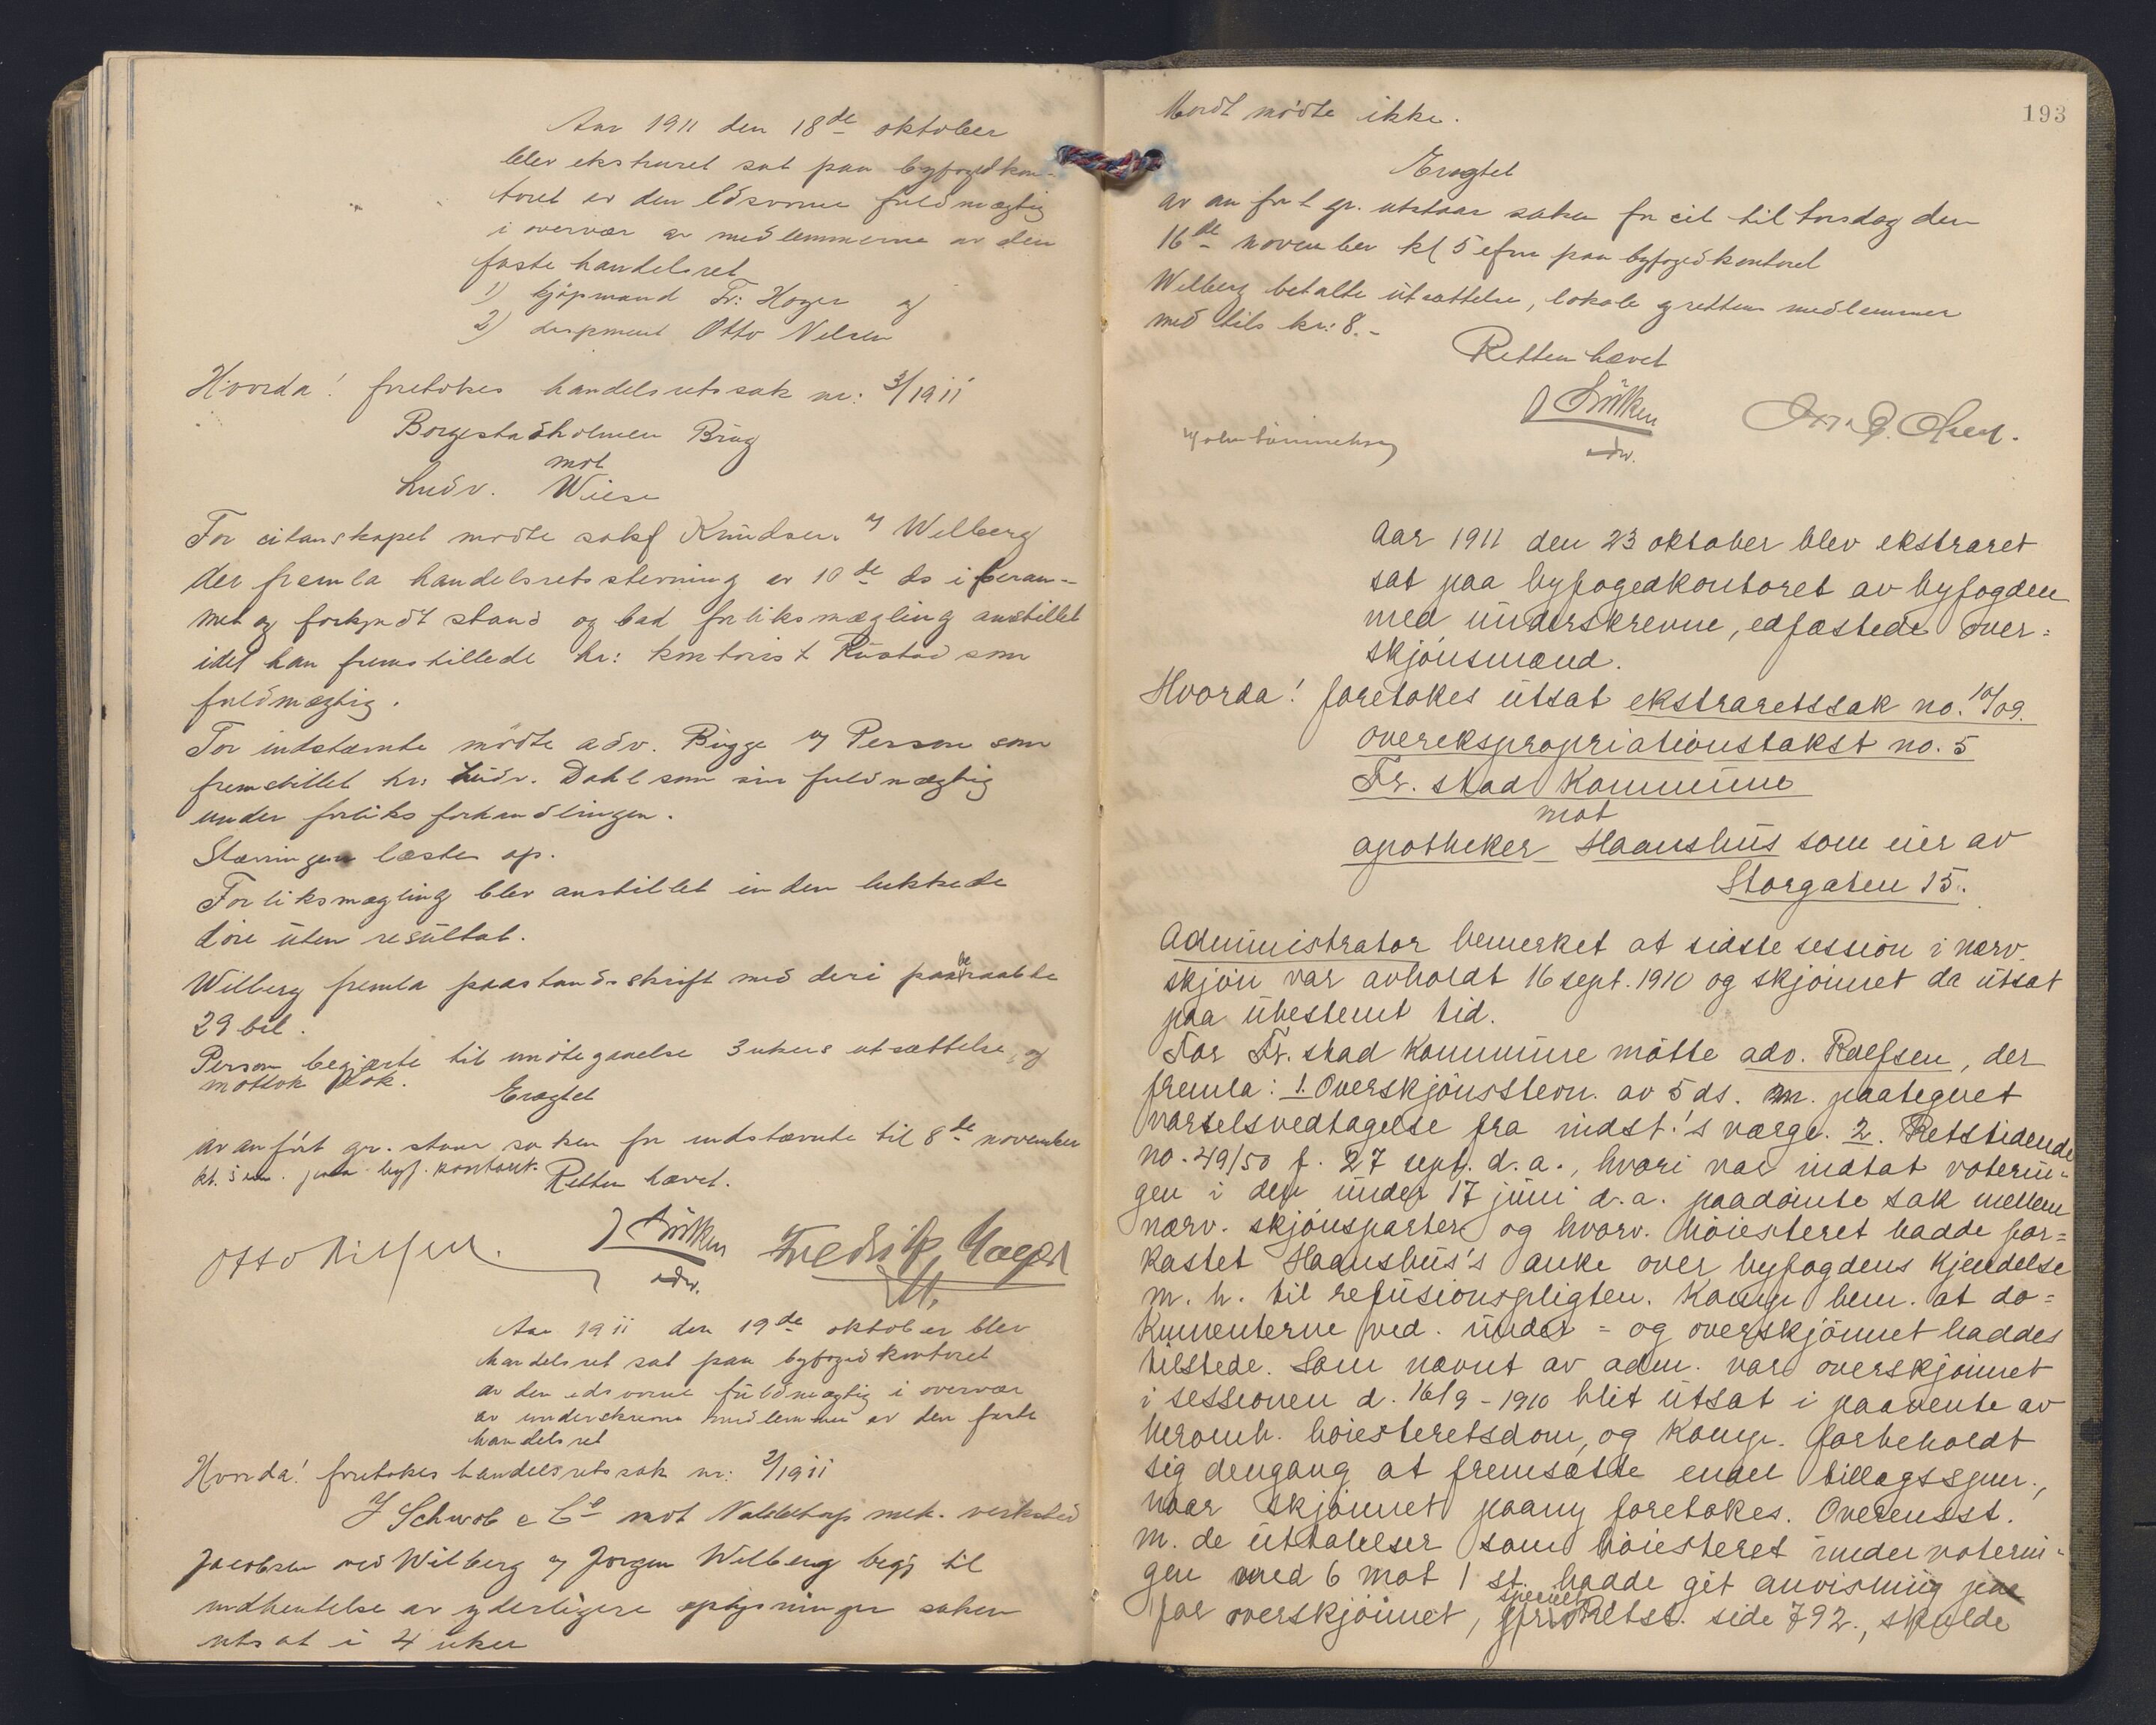 Aar 1911 den 18de oktober
blev ekstraret sat paa byfogedkon-
toret av den edsvorne fuldmægtig
i overvær av medlemmerne av den
faste handelsret
1) kjøpmand Fr: Hoyer og
2) Otto Nilsen
Hvorda! foretokes handelsretssak nr: 3/1911
Borgestadholmen Brug
mot
Ludv. Wiese
For citanskapet mødte sakf Knudsen v/ Wilberg
der fremla handelsretsstevning av 10de ds i beram-
met og forkyndt stand og bad forliksmægling anstillet
idet han fremstillede hr: kontorist Rustad som
fuldmægtig.
For indstævnte mødte adv. Bugge v/ Person som
fremstillet hr: Ludv. Dahl som sin fuldmægtig
under forliksforhandlingen.
Stævningen læstes op.
Forliksmægling blev anstillet inden lukkede
døre uten resultat.
Wilberg fremla paastandsskrift med deri paaberaabte
29 bil.
Person begjærte til imøtegaaelse 3 ukers utsættelse, og
mottok dok.
Eragtet
av anført gr. staar saken for indstævnte til 8de november
kl. 5 em. paa byf. kontoret.
Retten hævet.
Otto Nilsen. J Søilken Fredrik Hoyer
edsv.
Aar 1911 den 19de oktober blev
handelsret sat paa byfogedkontoret
av den edsvorne fuldmægtig i overvær
av underskrevne medlemmer av den faste
handelsret
Hvorda! foretokes handelsretssak nr: 2/1911
J Schwob & Co mot mek. verksted
Jacobsen ved Wilberg og Jørgen Wilberg begj til
indhentelse av yderligere oplysninger saken
utsat i 4 uker
193
Mordt mødte ikke.
Eragtet
av anført gr. utstaar saken for cit til torsdag den
16de november kl 5 efm paa byfogedkontoret
Wilberg betalte utsættelse, lokale og rettens medlemmer
med tils kr: 8.-
Retten hævet
J Søilken Olsen.
edsv.
Aar 1911 den 23 oktober blev ekstraret
sat paa byfogedkontoret av byfogden
med underskrevne, edfæstede over=
skjønsmænd.
Hvorda! foretokes utsat ekstraretssak no. 10/09.
overekspropriationstakst no. 5
Fr. stad Kommune
mot
apotheker Haanshus som eier av
Storgaten 15.
Administrator bemerket at sidste session i nærv.
skjøn var avholdt 16 sept. 1910 og skjønnet da utsat
paa ubestemt tid.
For Fr. stad Kommune møtte adv. Roefsen, der
fremla: 1. Overskjønsstevn. av 5 ds. m. paategnet
varselsvedtagelse fra indst.'s værge. 2. Retstidende
no. 49/50 f. 27 sept. d. a., hvori var indtat voterin-
gen i den under 17 juni d. a. paadømte sak mellem
nærv. skjønsparter og hvorv. høiesteret hadde for=
kastet Haanshus's anke over byfogdens kjendelse
m. h. til refusionspligten. Komp bem. at do=
kumenterne ved. under= og overskjønnet haddes
tilstede. Som nævnt av adm. var overskjønnet
i sessionen d. 16/9 - 1910 blit utsat i paavente av
heromh. høiesteretsdom, og komp. forbeholdt
sig dengang at fremsætte endel tillægsspm.,
naar skjønnet paany foretokes. Overensst.
m. de uttalelser som høiesteret under voterin-
gen med 6 mot 1 st. hadde git anvisning paa
for overskjønnet, specielt Retst. side 792., skulde